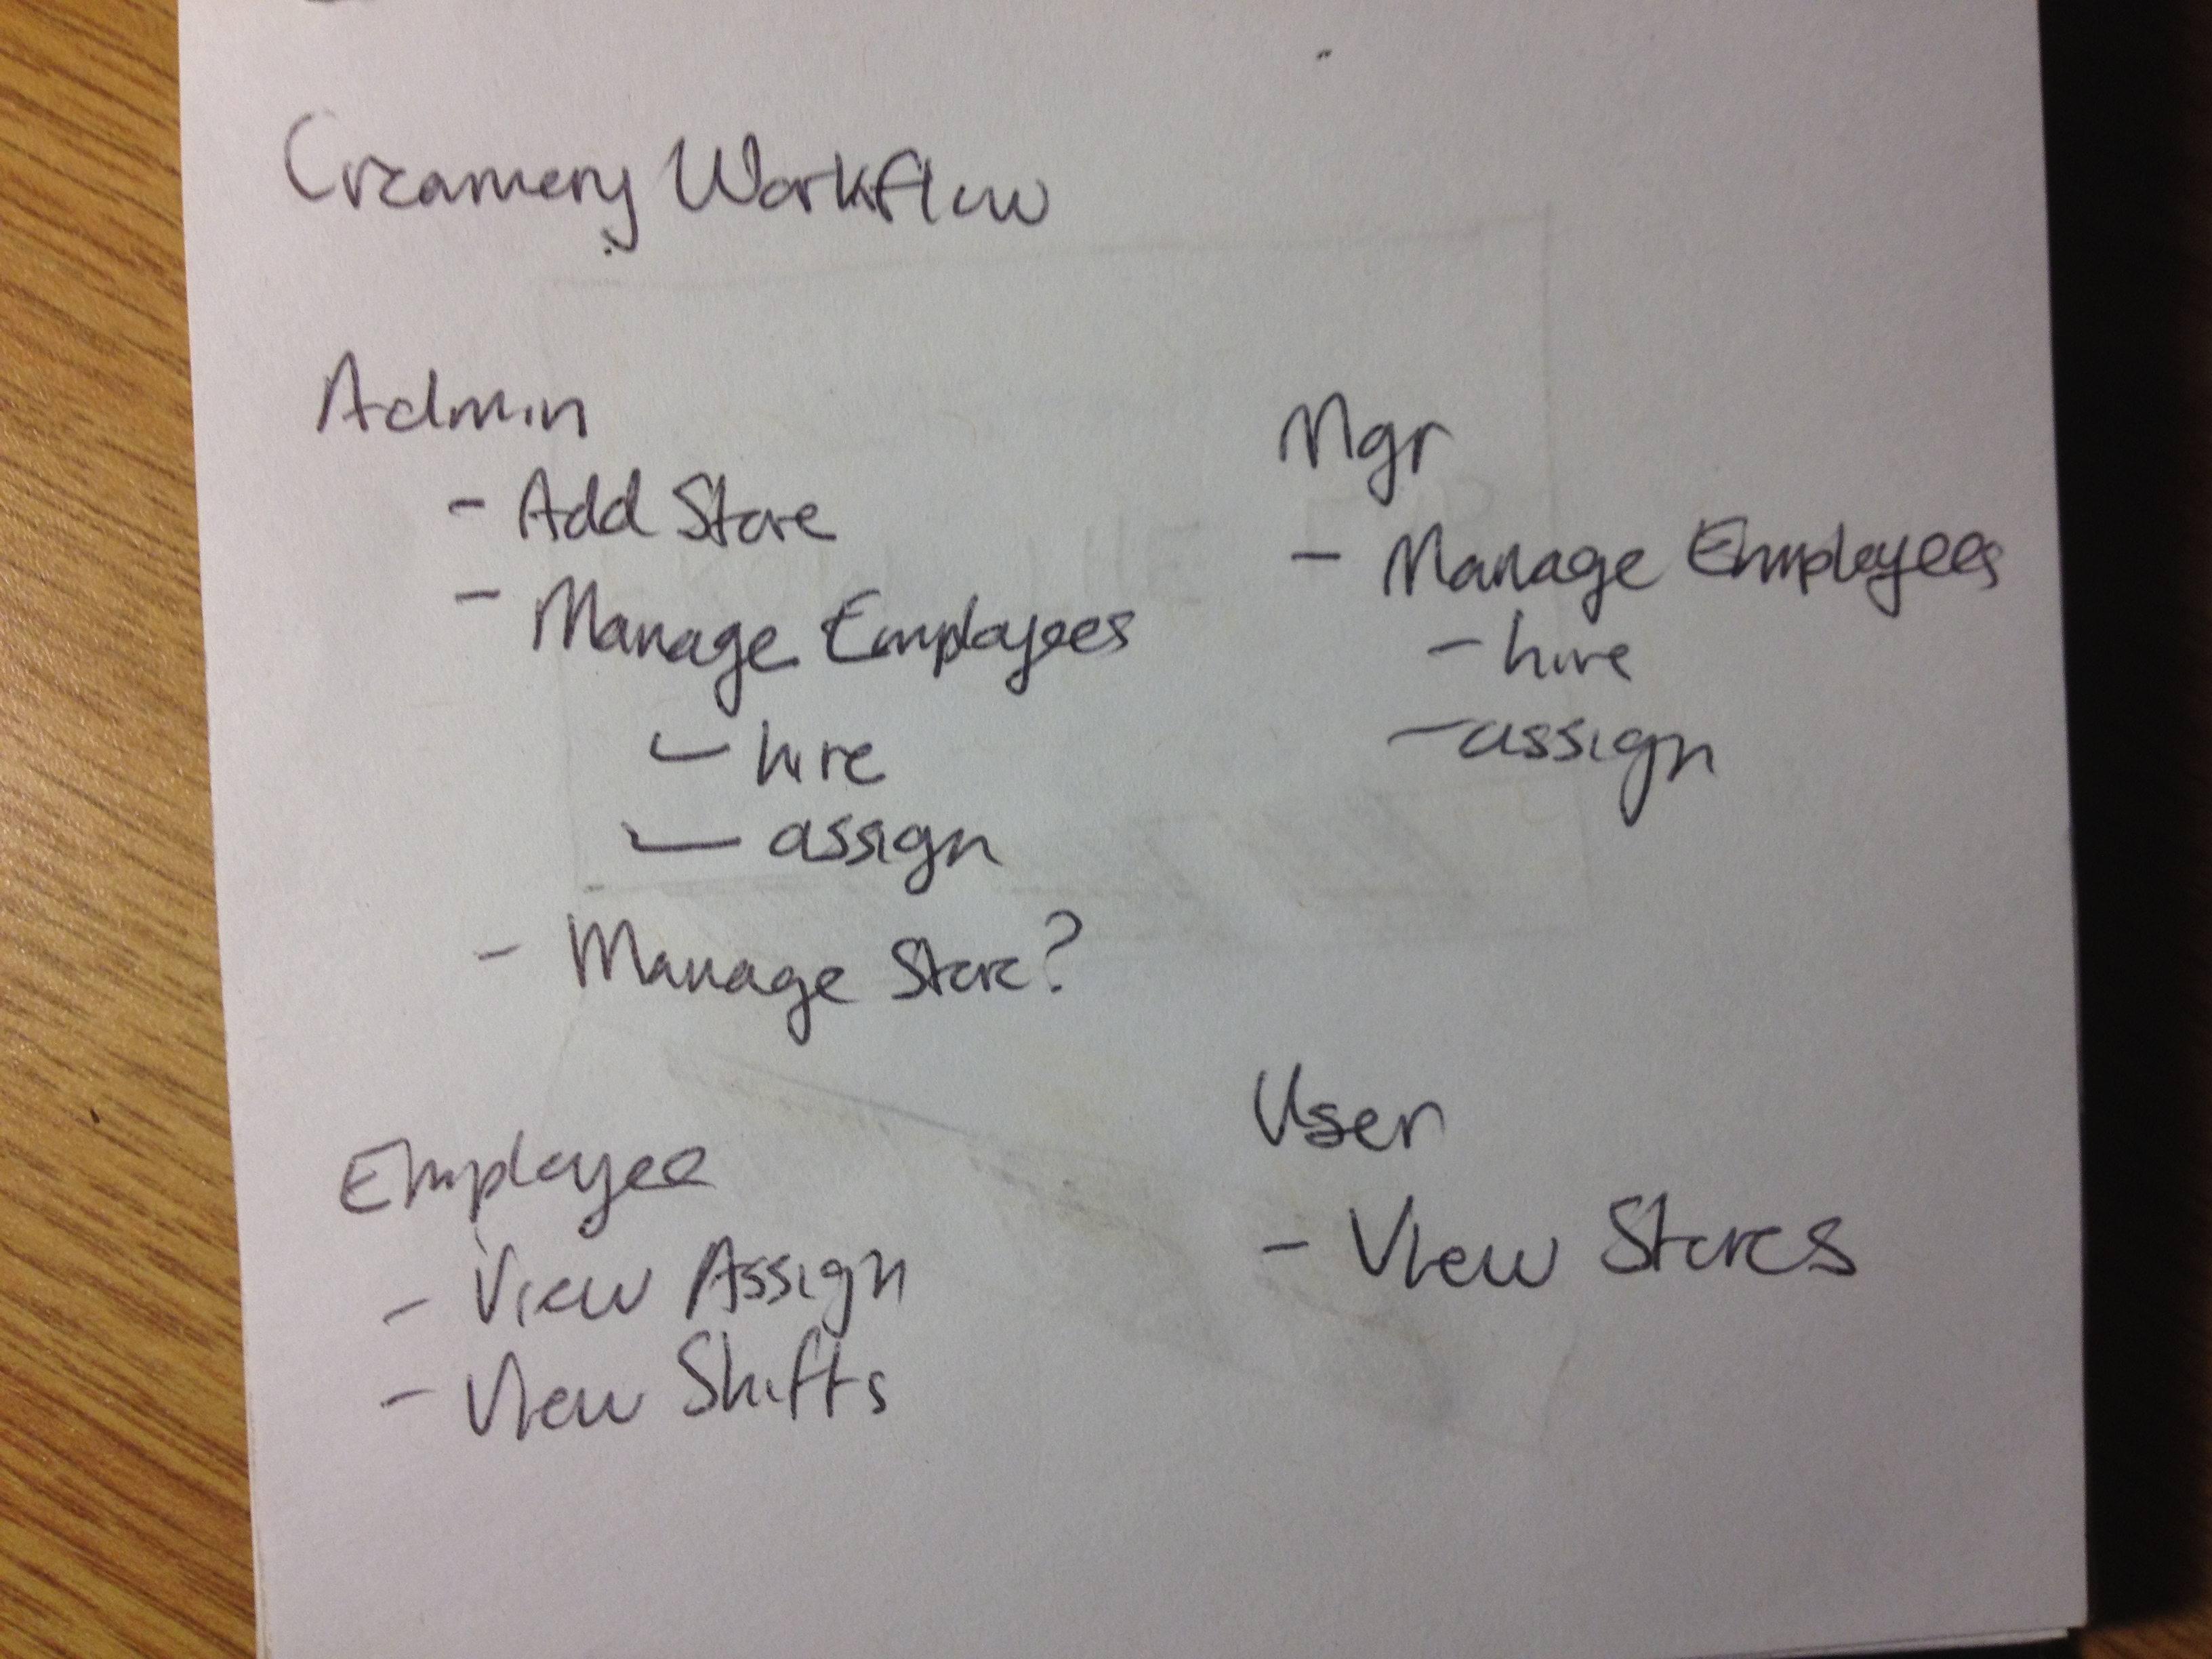 Creamery Workflow
Admin
- Add Store
- Manage Employees
- hire
- assign
- Manage Store?
Mgr
- Manage Employees
- hire
- assign
Employee
- View Assign
- View Shifts
User
- View Stores